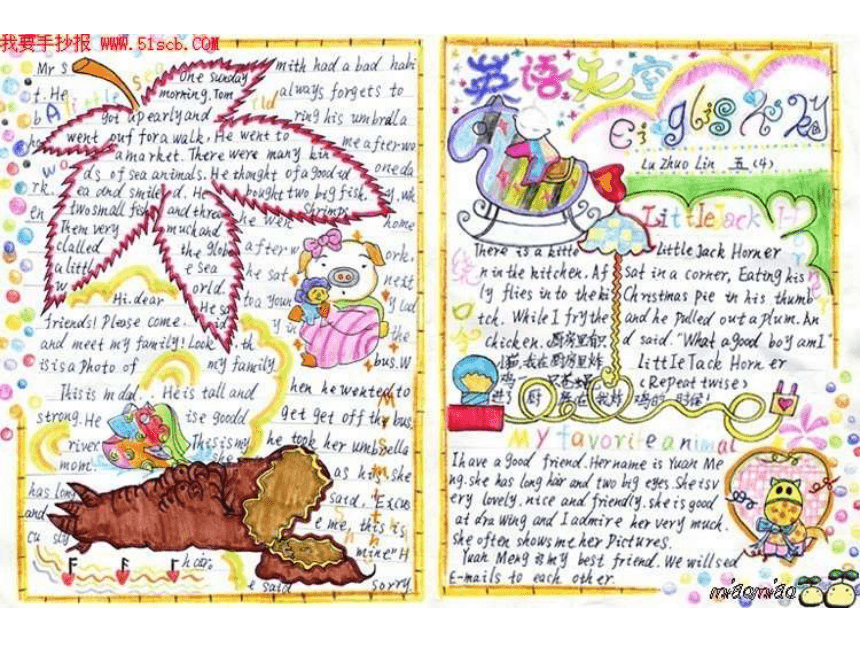 我要手抄报 www.51scb.COM
Mr S mith had a bad habi
t. He always forgets to
b ring his umbrella
me after wo
rk. oneda
y, wh
en he wen home
after w ork,
he sat next
to a youn g lad
y in the
bus. W
hen he wanted to
get get off the bus,
he took her umbrella
as his. she
said, Excus
e me, this is
mine" H
e said sorry.
One sunday
morning, Tom
got up early and
went out for a walk, He went to
a market. There were many kin
ds of sea animals. He thought of a good id
ea and smile d. He bought two big fish.
two small fish and three Shrimps
Them very much and
clalled the globe
a little e sea
w orld.
Hi. dear
friends! Please come.
and meet my family! Look th
is is a Photo of my family
This is m dad. He is tall and
strong. He is e goodd
river. This is my
mom. she
has long
and
cu sly
hair.
英语天空
English
Lu Zhuo Lin 五(4)
Little Jack H
There is a kitte
n in the kitchen. Af
ly flies in to the ki
tch. While I fry the
chicken. 厨房里有只
小猫,我在厨房里炸
鸡
Little Jack Horner
Sat in a corner, Eating his
Christmas pie in his thumb
and he Pulled out a plum. An
d said. "What a good boy am I"
Little Jack Horn er
(Repeat twise)
My favorite animal
I have a good friend. Her name is Yuan Me
ng. she has long hair and two big eyes. She is v
ery lovely. nice and friendly. she is good
at dra wing and I admire her very much.
She often shows me her Pictures.
Yuan Meng is my best friend. We will sed
E-mails to each other.
miaomiao